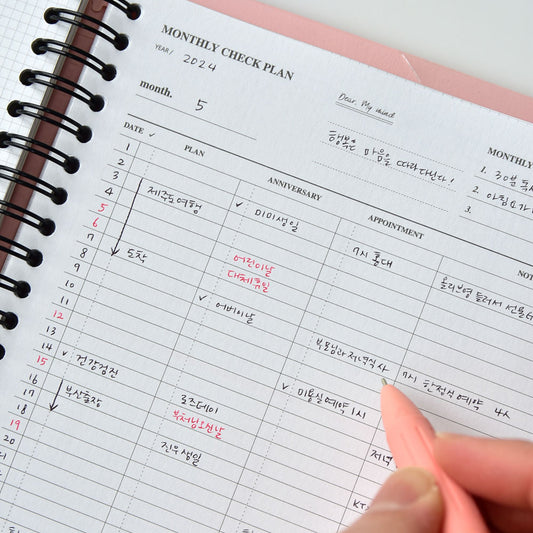 MONTHLY CHECK PLAN
YEAR / 2024
month. 5
Dear. My mind
행복은 마음을 따라다닌다!
MONTHLY
1. 30분 독서
2. 아침요가
3.
DATE ✓ PLAN ANNIVERSARY APPOINTMENT NOT
1
2
3 제주도여행 ✓ 미미생일 7시 홍대 올리브영 들러서 선물
4
5 어린이날
6 대체휴일
7 도착
8 ✓ 어버이날
9
10 부모님과 저녁식사 7시 한정식 예약 4人
11
12
13
14 ✓ 건강검진 로즈데이 ✓ 미용실예약 1시
15 부처님오신날
16 부산출장 진우생일 저녁
17
18 KT
19
20